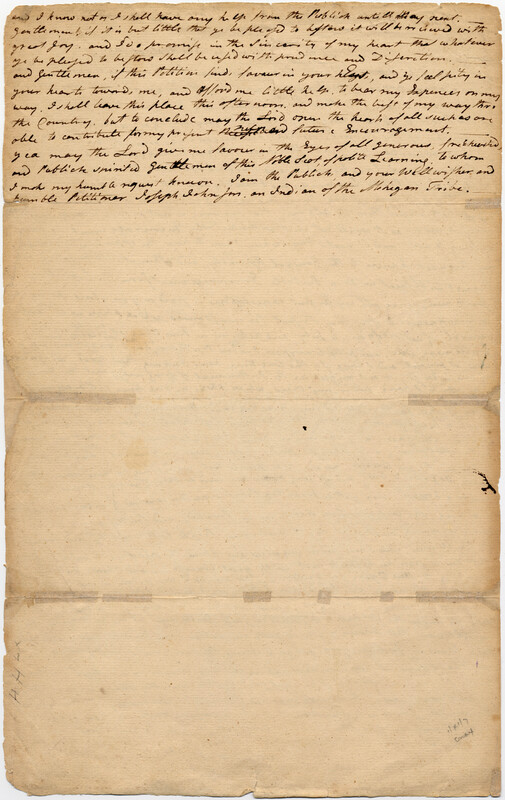 and I know not as I shall have any help from the Publick untill May next.
Gentlemen, if it is but little that ye be pleased to bestow it will be received with
great Joy. and I do promise in the Sincerity of my heart that whatever
ye be pleased to bestow shall be used with prudence and Discretion.
and Gentlemen, if this Petition find favour in your hearts, and ye feel pity in
your hearts towards me, and afford me little help, to bear my Expences on my
way, I shall leave this place this afternoon, and make the best of my way thro
the Country. but to conclude may the Lord open the hearts of all such as are
able to contribute for my present and future Encouragement.
yea may the Lord give me favour in the Eyes of all Generous, freehearted,
and Publick spirited Gentlemen of this Noble Seat of polite Learning, to whom
I make my humble request known. I am the Publick, and your Well wisher, and
humble Petitioner Joseph Johnson. an Indian of the Mohegan Tribe.